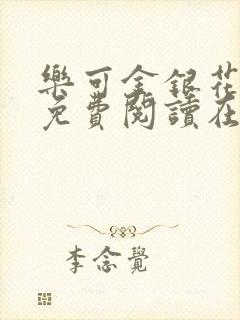 樂可金銀花
免費閱讀在
李念覺